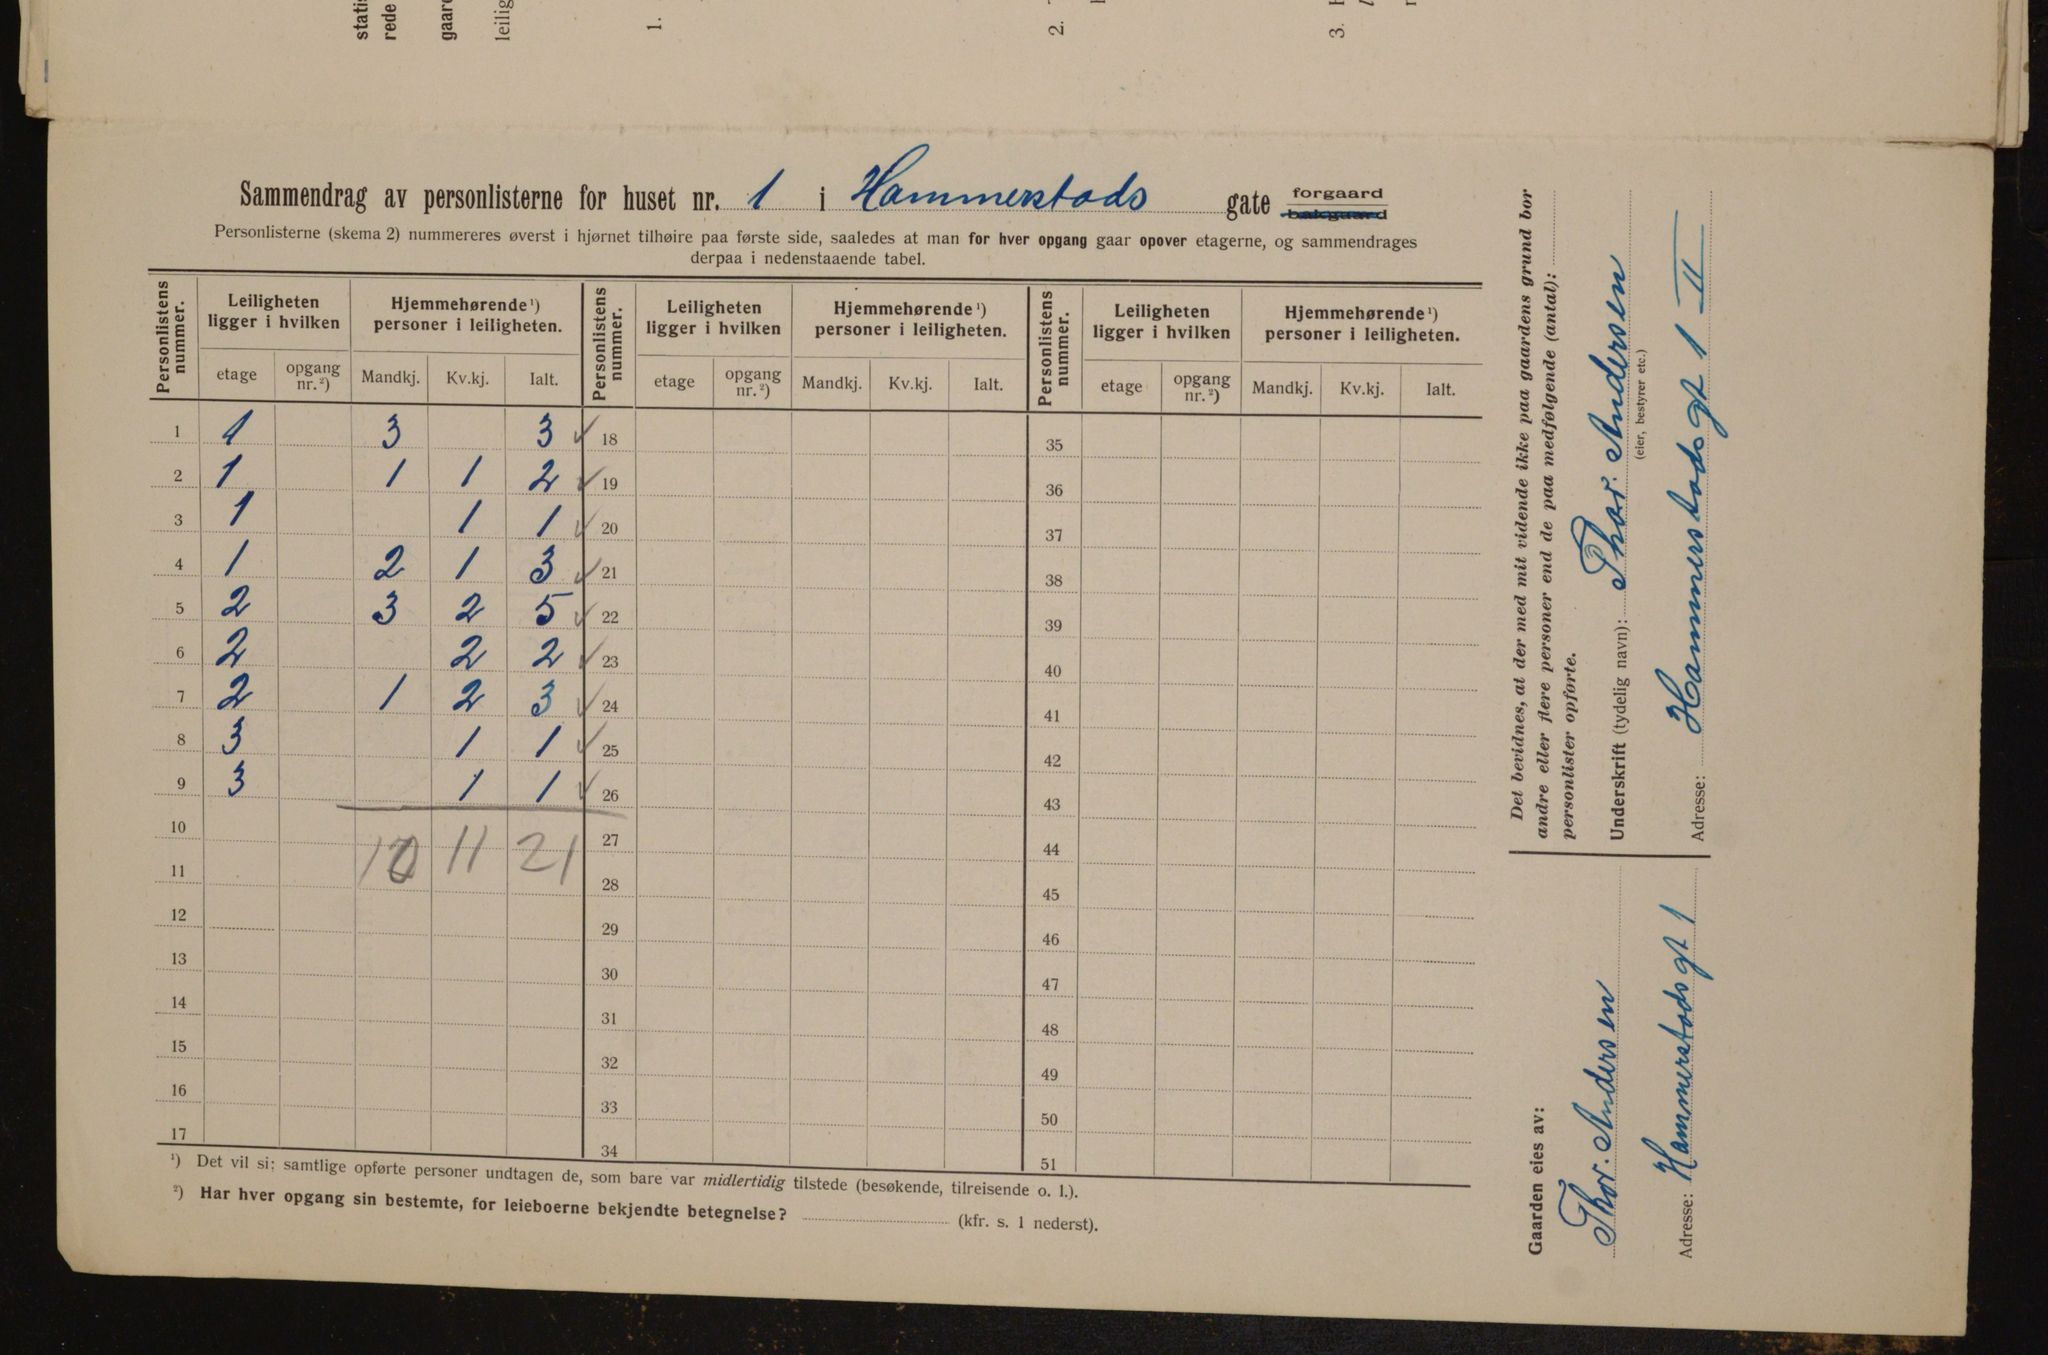 statis
rede
gaard
leilig
1.
2.
3.
Sammendrag av personlisterne for huset nr. 1 i Hammerstads gate forgaard bakgaard
Personlisterne (skema 2) nummereres øverst i hjørnet tilhøire paa første side, saaledes at man for hver opgang gaar opover etagerne, og sammendrages
derpaa i nedenstaaende tabel.
Personlistens nummer. Leiligheten ligger i hvilken Hjemmehørende¹) personer i leiligheten. Personlistens nummer. Leiligheten ligger i hvilken Hjemmehørende¹) personer i leiligheten. Personlistens nummer. Leiligheten ligger i hvilken Hjemmehørende¹) personer i leiligheten.
etage opgang nr.²) Mandkj. Kv.kj. Ialt. etage opgang nr.²) Mandkj. Kv.kj. Ialt. etage opgang nr.²) Mandkj. Kv.kj. Ialt.
1 1 3 3 ✓ 18 35
2 1 1 1 2 ✓ 19 36
3 1 1 1 ✓ 20 37
4 1 2 1 3 ✓ 21 38
5 2 3 2 5 ✓ 22 39
6 2 2 2 ✓ 23 40
7 2 1 2 3 ✓ 24 41
8 3 1 1 ✓ 25 42
9 3 1 1 ✓ 26 43
10 10 11 21 27 44
11 28 45
12 29 46
13 30 47
14 31 48
15 32 49
16 33 50
17 34 51
¹) Det vil si: samtlige opførte personer undtagen de, som bare var midlertidig tilstede (besøkende, tilreisende o. l.).
²) Har hver opgang sin bestemte, for leieboerne bekjendte betegnelse? (kfr. s. 1 nederst).
Det bevidnes, at der med mit vidende ikke paa gaardens grund bor
andre eller flere personer end de paa medfølgende (antal):
personlister opførte.
Underskrift (tydelig navn): Thor. Andersen
(eier, bestyrer etc.)
Adresse: Hammerstadsgt 1 II
Gaarden eies av:
Thor. Andersen
Adresse: Hammerstadsgt 1